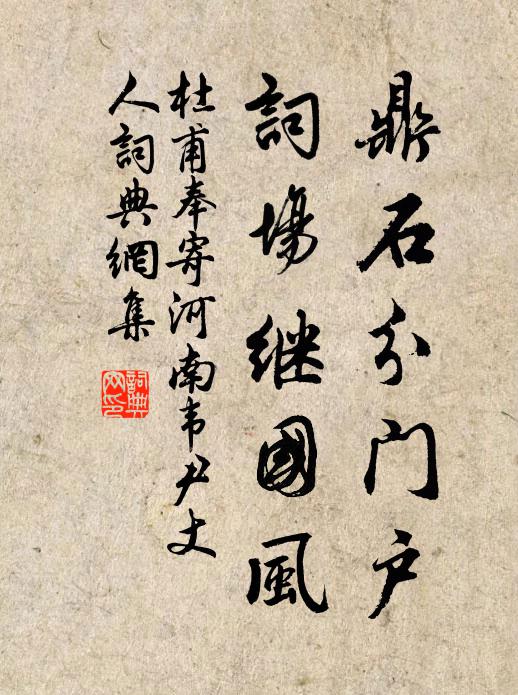 鼎石分门户
詞場继國風
杜甫奉寄河南韦尹丈
人詞典網集
詞典
网印